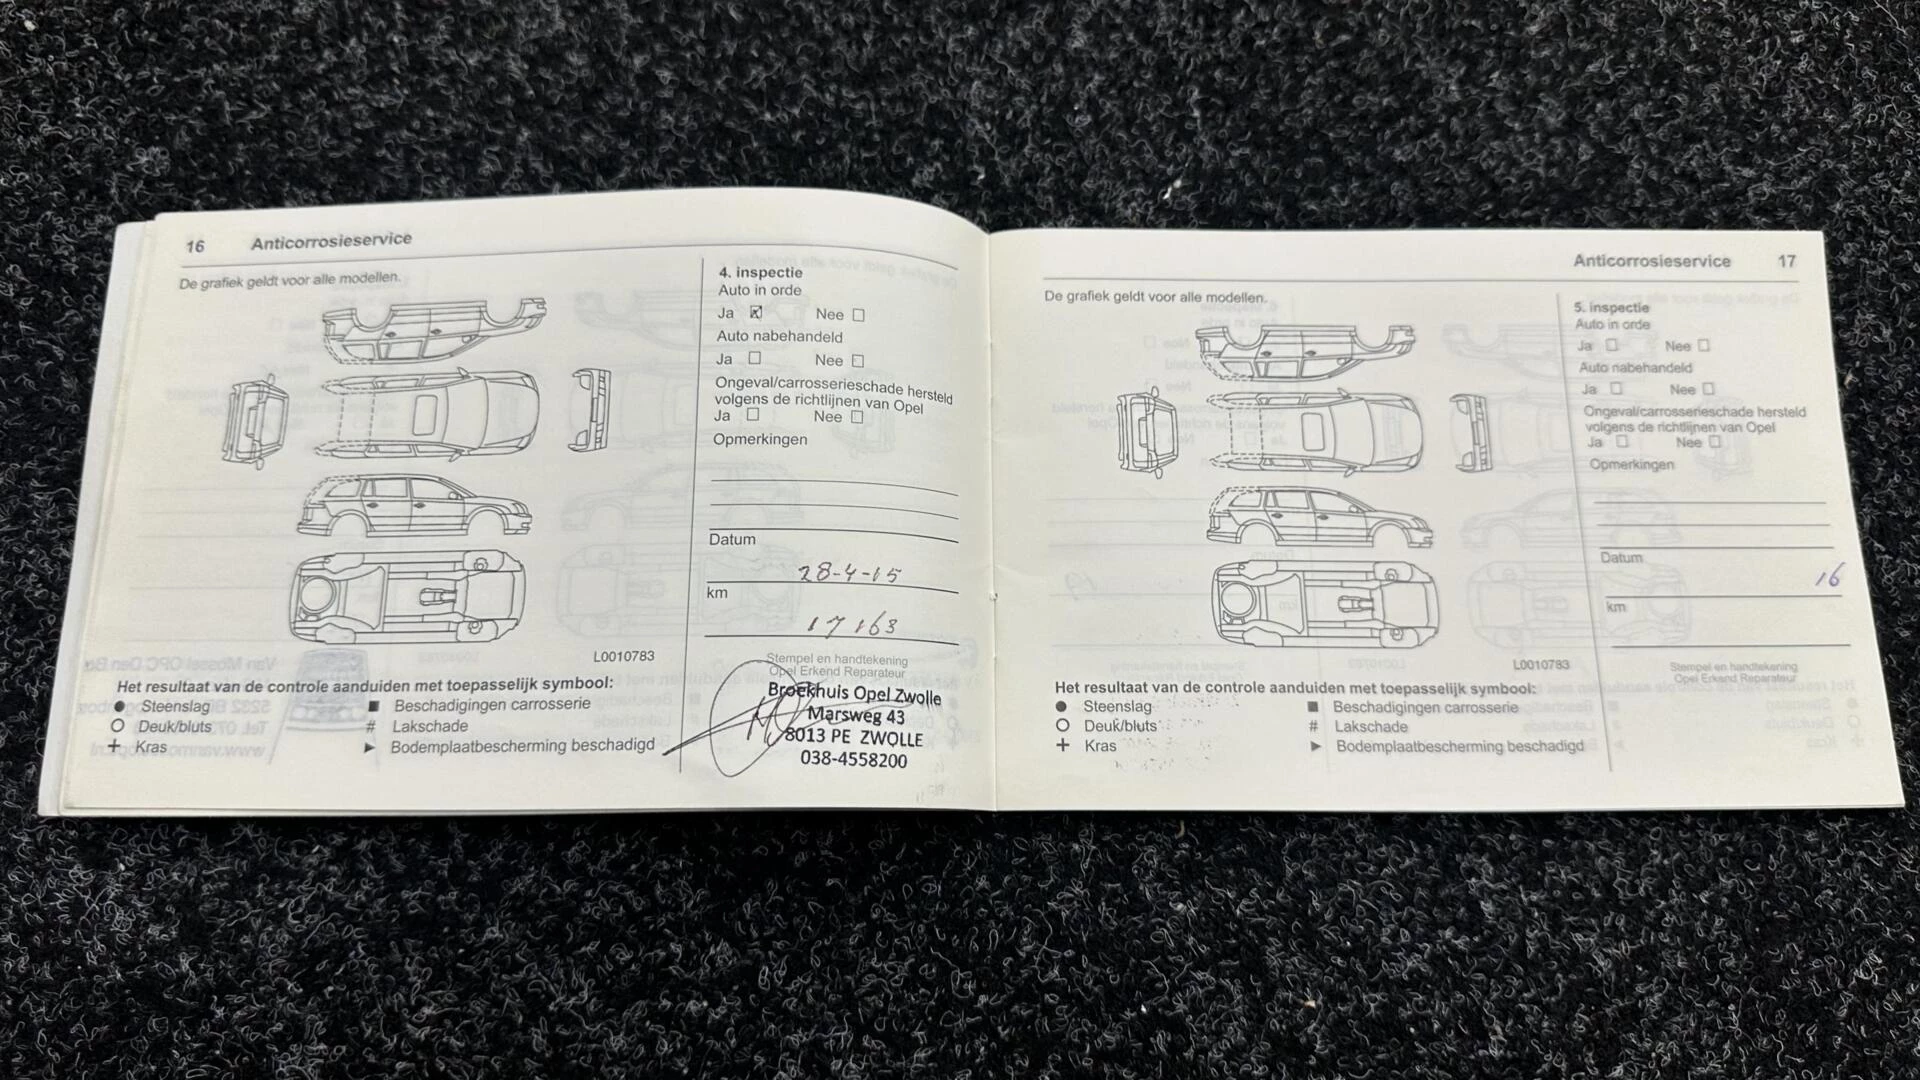 16 Anticorrosieservice
De grafiek geldt voor alle modellen.
L0010783
Het resultaat van de controle aanduiden met toepasselijk symbool:
● Steenslag
■ Beschadigingen carrosserie
O Deuk/bluts
# Lakschade
+ Kras
► Bodemplaatbescherming beschadigd
4. inspectie
Auto in orde
Ja ☒ Nee ☐
Auto nabehandeld
Ja ☐ Nee ☐
Ongeval/carrosserieschade hersteld
volgens de richtlijnen van Opel
Ja ☐ Nee ☐
Opmerkingen
Datum
28-4-15
km
17163
Stempel en handtekening
Opel Erkend Reparateur
Broekhuis Opel Zwolle
Marsweg 43
8013 PE ZWOLLE
038-4558200
Anticorrosieservice 17
De grafiek geldt voor alle modellen.
L0010783
Het resultaat van de controle aanduiden met toepasselijk symbool:
● Steenslag
■ Beschadigingen carrosserie
O Deuk/bluts
# Lakschade
+ Kras
► Bodemplaatbescherming beschadigd
5. inspectie
Auto in orde
Ja ☐ Nee ☐
Auto nabehandeld
Ja ☐ Nee ☐
Ongeval/carrosserieschade hersteld
volgens de richtlijnen van Opel
Ja ☐ Nee ☐
Opmerkingen
Datum
16
km
Stempel en handtekening
Opel Erkend Reparateur